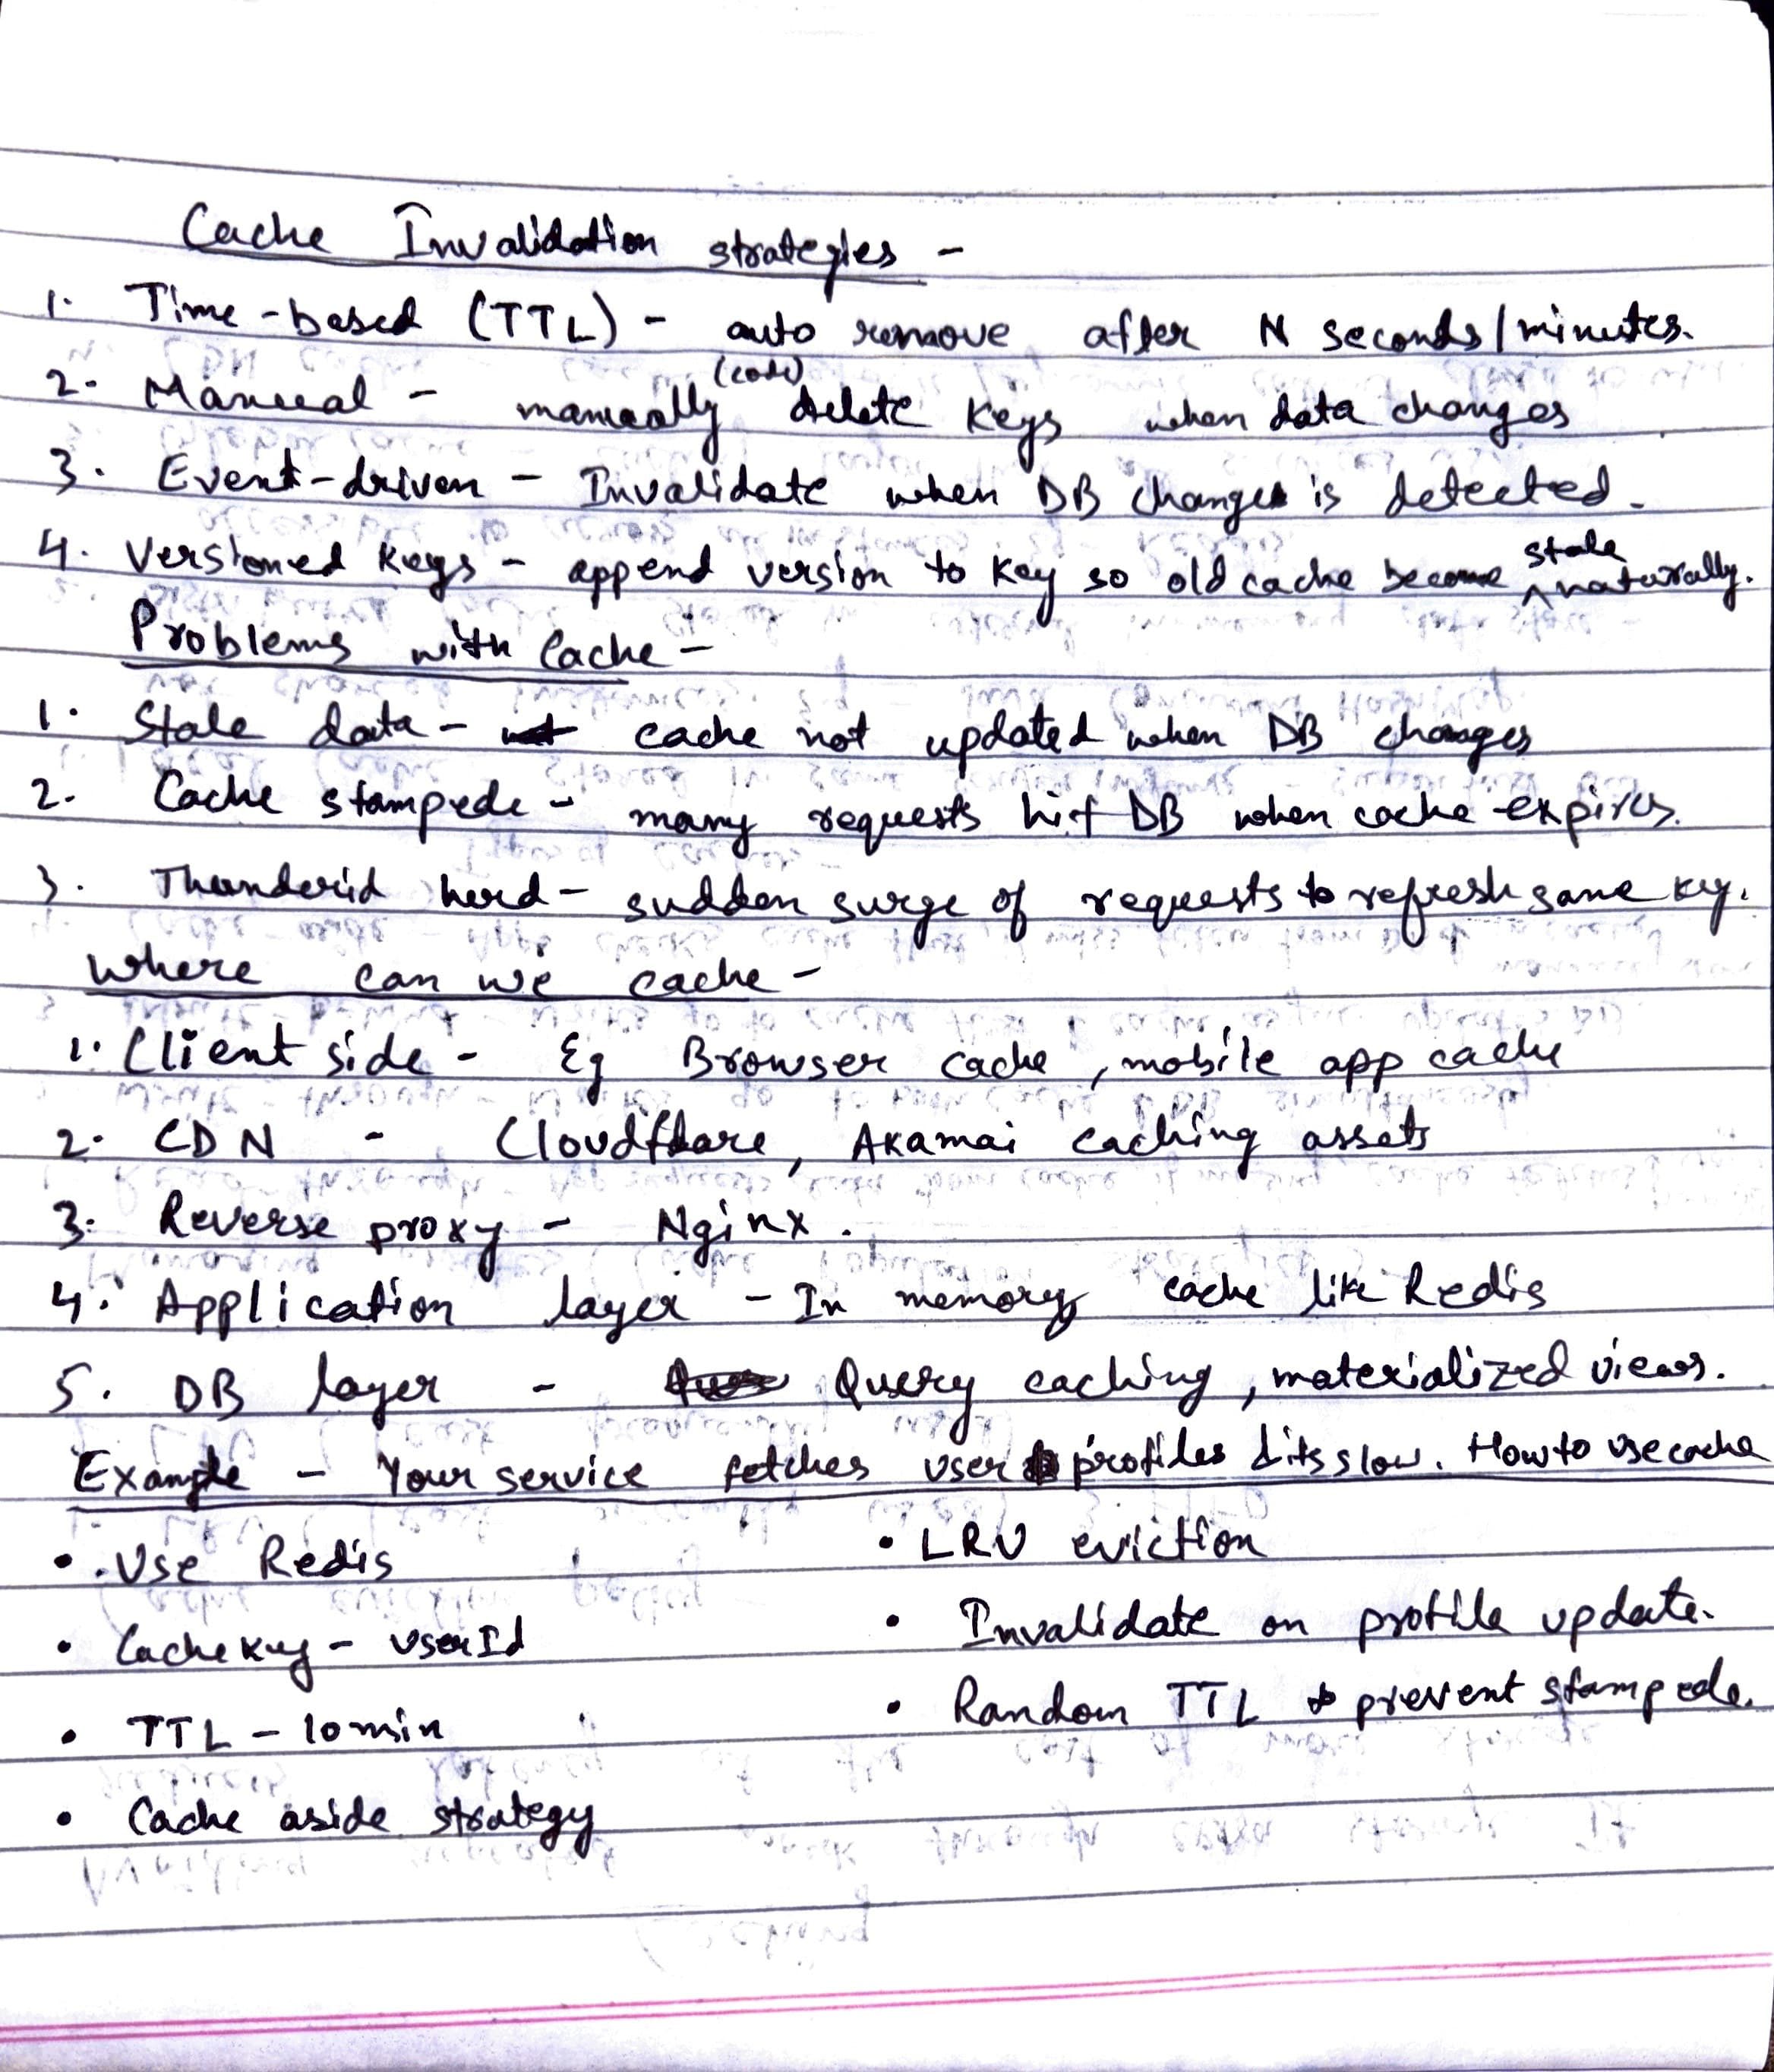 Cache Invalidation strategies -
1. Time-based (TTL) - auto remove after N seconds/minutes.
2. Manual - manually (code) delete keys when data changes
3. Event-driven - Invalidate when DB change is detected.
4. Versioned keys - append version to key so old cache become stale naturally.
Problems with Cache -
1. Stale data - cache not updated when DB changes
2. Cache stampede - many requests hit DB when cache expires.
3. Thunderid herd - sudden surge of requests to refresh same key.
Where can we cache -
1. Client side - Eg Browser cache, mobile app cache
2. CDN - Cloudflare, Akamai caching assets
3. Reverse proxy - Nginx.
4. Application layer - In memory cache like Redis
5. DB layer - Query caching, materialized views.
Example - Your service fetches user profiles & its slow. How to use cache
• Use Redis
• Cache key - userId
• TTL - 10 min
• Cache aside strategy
• LRU eviction
• Invalidate on profile update.
• Random TTL to prevent stampede.